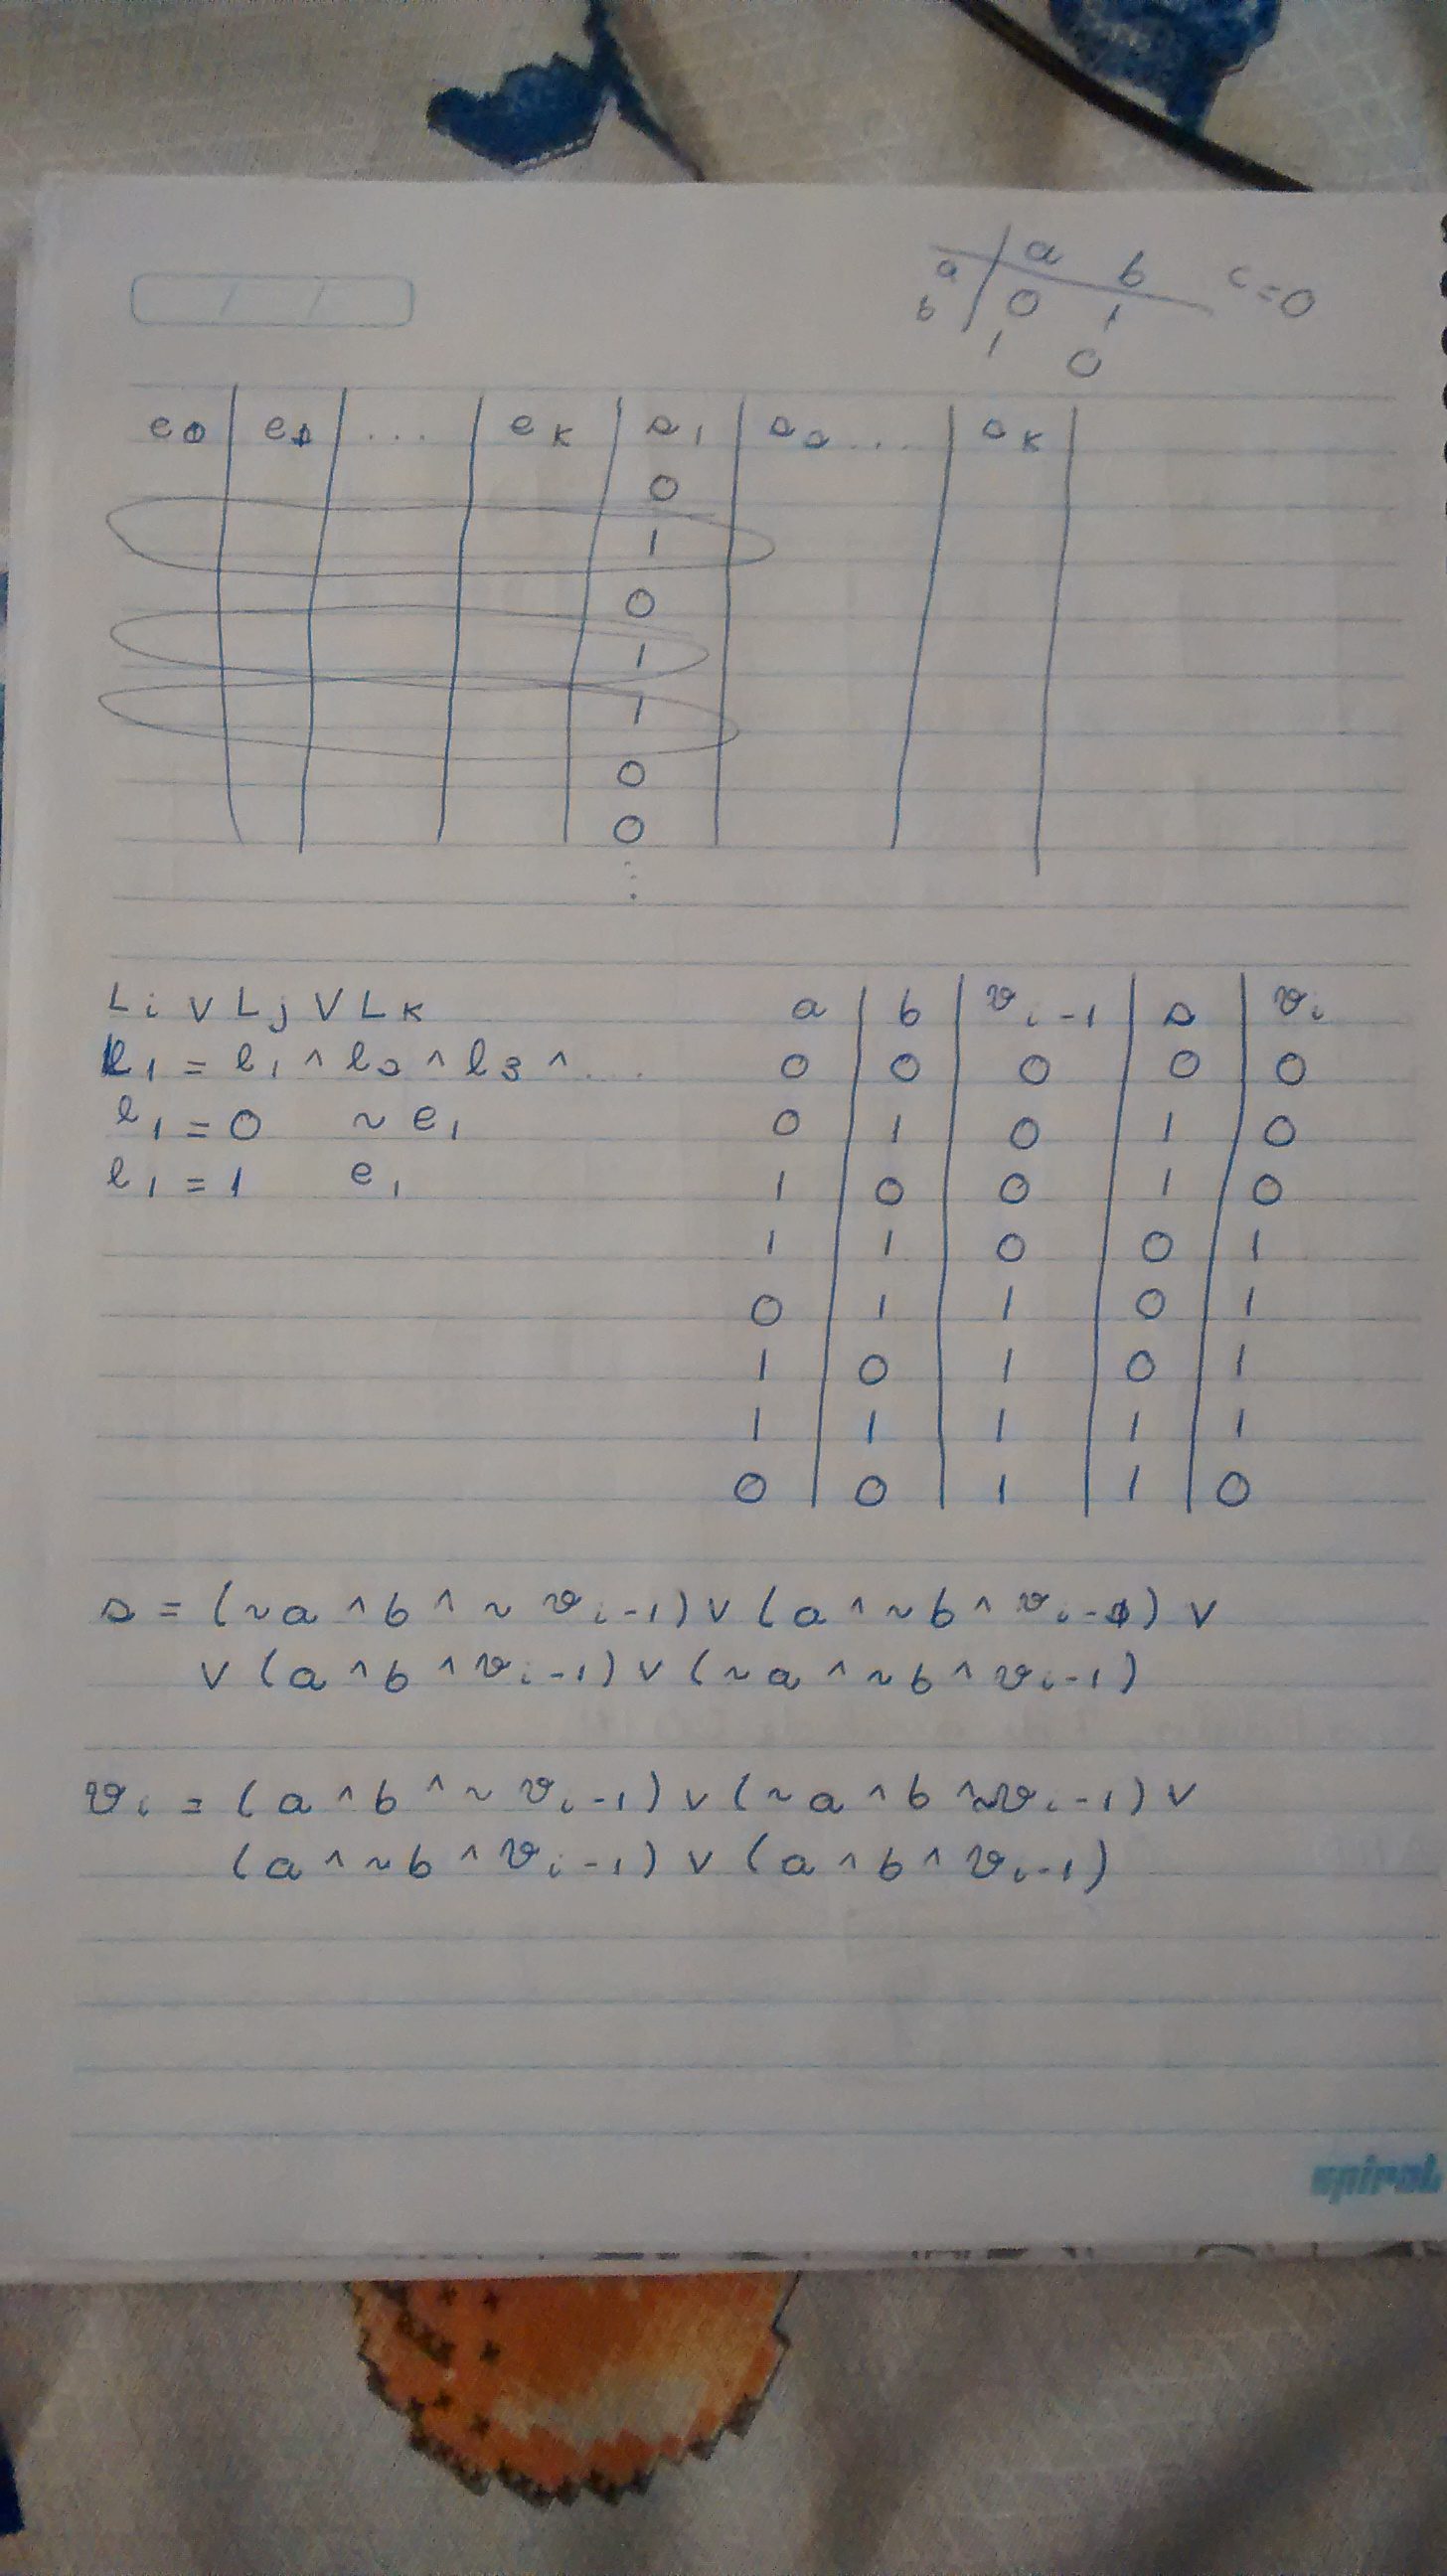 a b c=0
a 0 1
b 1 0
e0 e1 ... ek s1 s2 ... sk
0
1
0
1
1
0
0
⋮
Li ∨ Lj ∨ Lk
l1 = l1 ^ l2 ^ l3 ^ ...
l1 = 0 ~e1
l1 = 1 e1
a b vi-1 s vi
0 0 0 0 0
0 1 0 1 0
1 0 0 1 0
1 1 0 0 1
0 1 1 0 1
1 0 1 0 1
1 1 1 1 1
0 0 1 1 0
s = (~a ^ b ^ ~vi-1) ∨ (a ^ ~b ^ vi-1) ∨
∨ (a ^ b ^ vi-1) ∨ (~a ^ ~b ^ vi-1)
vi = (a ^ b ^ ~vi-1) ∨ (~a ^ b ^ vi-1) ∨
(a ^ ~b ^ vi-1) ∨ (a ^ b ^ vi-1)
spiral